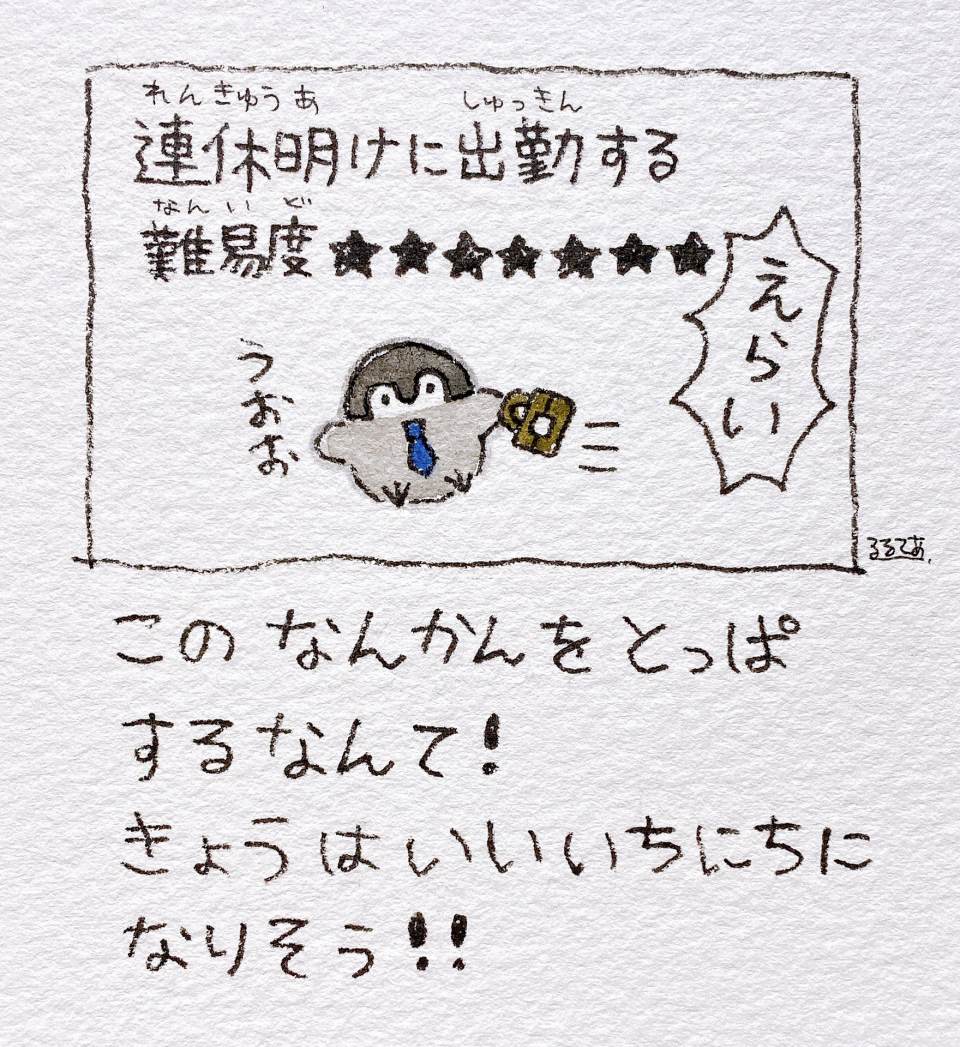 れんきゅうあ しゅっきん
連休明けに出勤する
なんいど
難易度★★★★★★★
えらい
うおお
るるてあ
このなんかんをとっぱ
するなんて!
きょうはいいいちにちに
なりそう!!